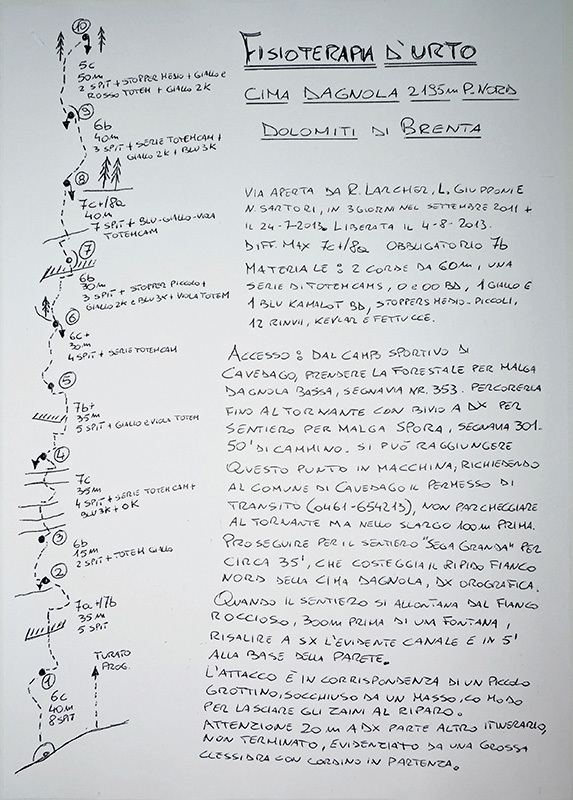 FISIOTERAPIA D'URTO
CIMA DAGNOLA 2195m P. NORD
DOLOMITI DI BRENTA
VIA APERTA DA R. LARCHER, L. GIUPPONI E
N. SARTORI, IN 3 GIORNI NEL SETTEMBRE 2011 +
IL 24-7-2013. LIBERATA IL 4-8-2013.
DIFF. MAX 7c+/8a OBBLIGATORIO 7b
MATERIALE: 2 CORDE DA 60m, UNA
SERIE DI TOTEMCAMS, 0 e 00 BD, 1 GIALLO E
1 BLU KAMALOT BD, STOPPERS MEDIO-PICCOLI,
12 RINVII, KEVLAR E FETTUCCE.
ACCESSO: DAL CAMPO SPORTIVO DI
CAVEDAGO, PRENDERE LA FORESTALE PER MALGA
DAGNOLA BASSA, SEGNAVIA NR. 353. PERCORERLA
FINO AL TORNANTE CON BIVIO A DX PER
SENTIERO PER MALGA SPORA, SEGNAVIA 301.
50' DI CAMMINO. SI PUÒ RAGGIUNGERE
QUESTO PUNTO IN MACCHINA, RICHIEDENDO
AL COMUNE DI CAVEDAGO IL PERMESSO DI
TRANSITO (0461-654213), NON PARCHEGGIARE
AL TORNANTE MA NELLO SLARGO 100m PRIMA.
PROSEGUIRE PER IL SENTIERO "SEGA GRANDA" PER
CIRCA 35', CHE COSTEGGIA IL RIPIDO FIANCO
NORD DELLA CIMA DAGNOLA, DX OROGRAFICA.
QUANDO IL SENTIERO SI ALLONTANA DAL FIANCO
ROCCIOSO, 300m PRIMA DI UM FONTANA,
RISALIRE A SX L'EVIDENTE CANALE E IN 5'
ALLA BASE DELLA PARETE.
L'ATTACCO È IN CORRISPONDENZA DI UN PICCOLO
GROTTINO, SOCCHIUSO DA UN MASSO, COMODO
PER LASCIARE GLI ZAINI AL RIPARO.
ATTENZIONE 20 m A DX PARTE ALTRO ITINERARIO,
NON TERMINATO, EVIDENZIATO DA UNA GROSSA
CLESSIDRA CON CORDINO IN PARTENZA.
10
5c
50m
2 SPIT + STOPPER MEDIO + GIALLO E
ROSSO TOTEM + GIALLO 2K
9
6b
40m
3 SPIT + SERIE TOTEMCAM +
GIALLO 2K + BLU 3K
8
7c+/8a
40m
7 SPIT + BLU-GIALLO-VIOLA
TOTEMCAM
7
6b
30m
3 SPIT + STOPPER PICCOLO +
GIALLO 2K e BLU 3K + VIOLA TOTEM
6
6c+
30m
4 SPIT + SERIE TOTEMCAM
5
7b+
35m
5 SPIT + GIALLO e VIOLA TOTEM
4
7c
35m
4 SPIT + SERIE TOTEMCAM +
BLU 3K + 0K
3
6b
15m
2 SPIT + TOTEM GIALLO
2
7a+/7b
35m
5 SPIT
TURATO
PROG.
1
6c
40m
8 SPIT